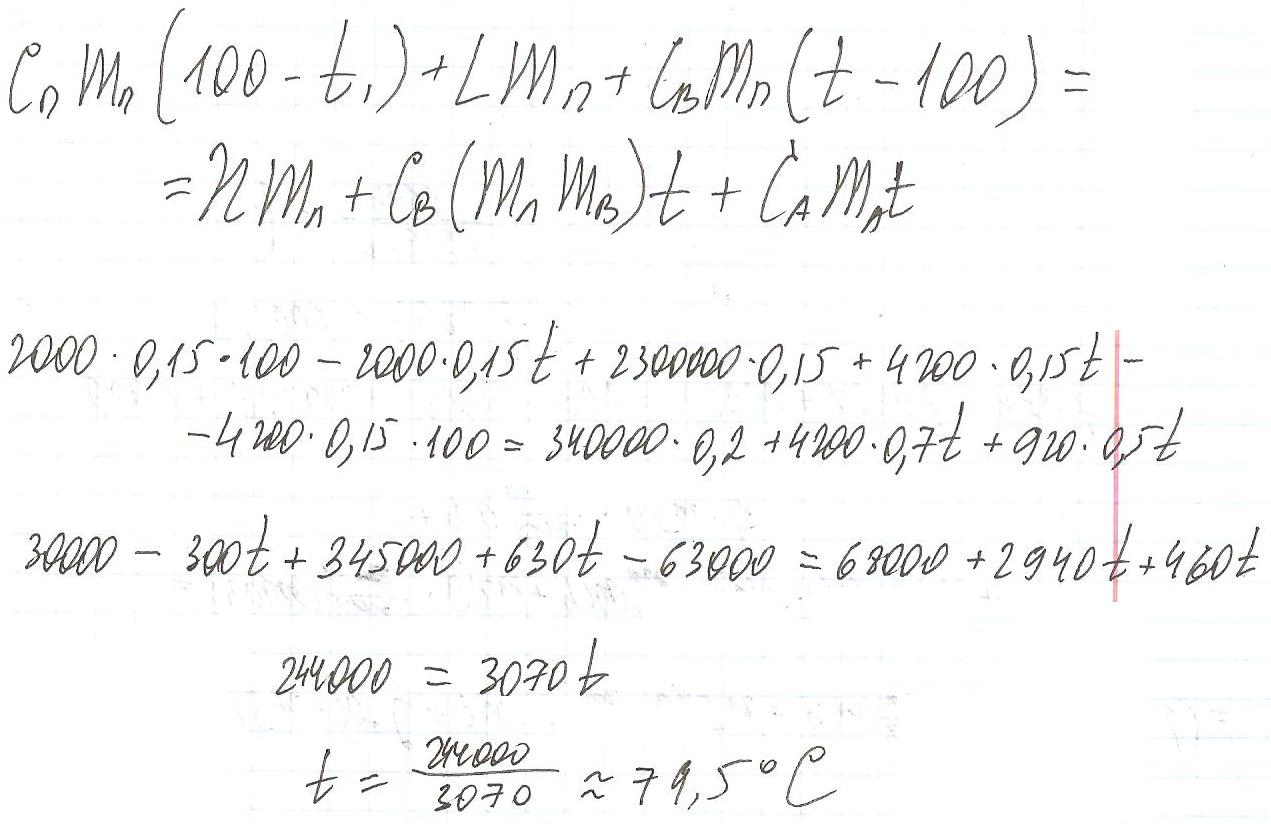 Cп mп (100 - t₁) + L mп + Cв mп (t - 100) =
= λ mл + Cв (mл mв) t + CА mА t
2000 · 0,15 · 100 - 2000 · 0,15t + 2300000 · 0,15 + 4200 · 0,15t -
- 4200 · 0,15 · 100 = 340000 · 0,2 + 4200 · 0,7t + 920 · 0,5t
30000 - 300t + 345000 + 630t - 63000 = 68000 + 2940t + 460t
244000 = 3070t
t = 244000/3070 ≈ 79,5°C